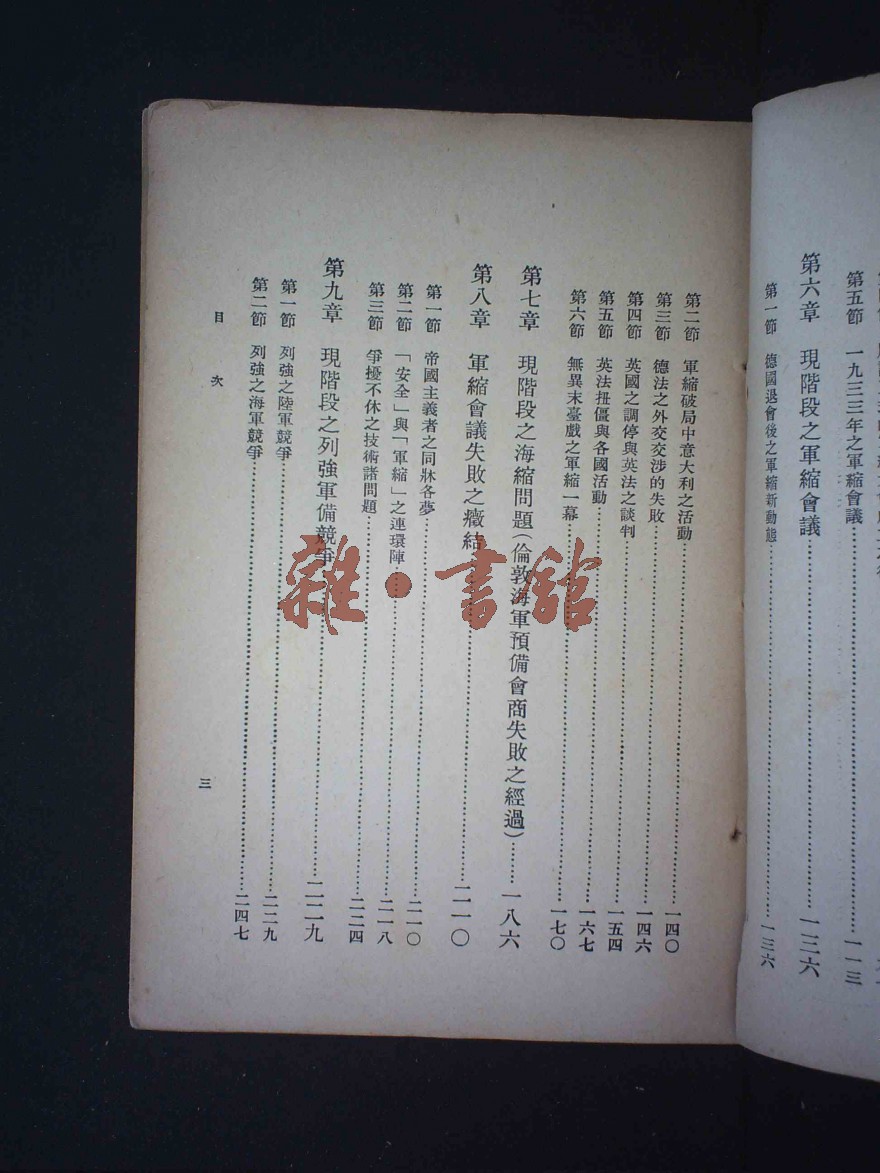 第五節 一九三三年之軍縮會議……一一三
第六章 現階段之軍縮會議……一三六
第一節 德國退會後之軍縮新動態……一三六
第二節 軍縮破局中意大利之活動……一四〇
第三節 德法之外交交涉的失敗……一四六
第四節 英國之調停與英法之談判……一五四
第五節 英法扭僵與各國活動……一六七
第六節 無異末臺戲之軍縮一幕……一七〇
第七章 現階段之海縮問題(倫敦海軍預備會商失敗之經過)……一八六
第八章 軍縮會議失敗之癥結……二一〇
第一節 帝國主義者之同牀各夢……二一〇
第二節 「安全」與「軍縮」之連環陣……二一八
第三節 爭擾不休之技術諸問題……二二四
第九章 現階段之列強軍備競爭……二二九
第一節 列強之陸軍競爭……二二九
第二節 列強之海軍競爭……二四七
目次
三
雜·書館